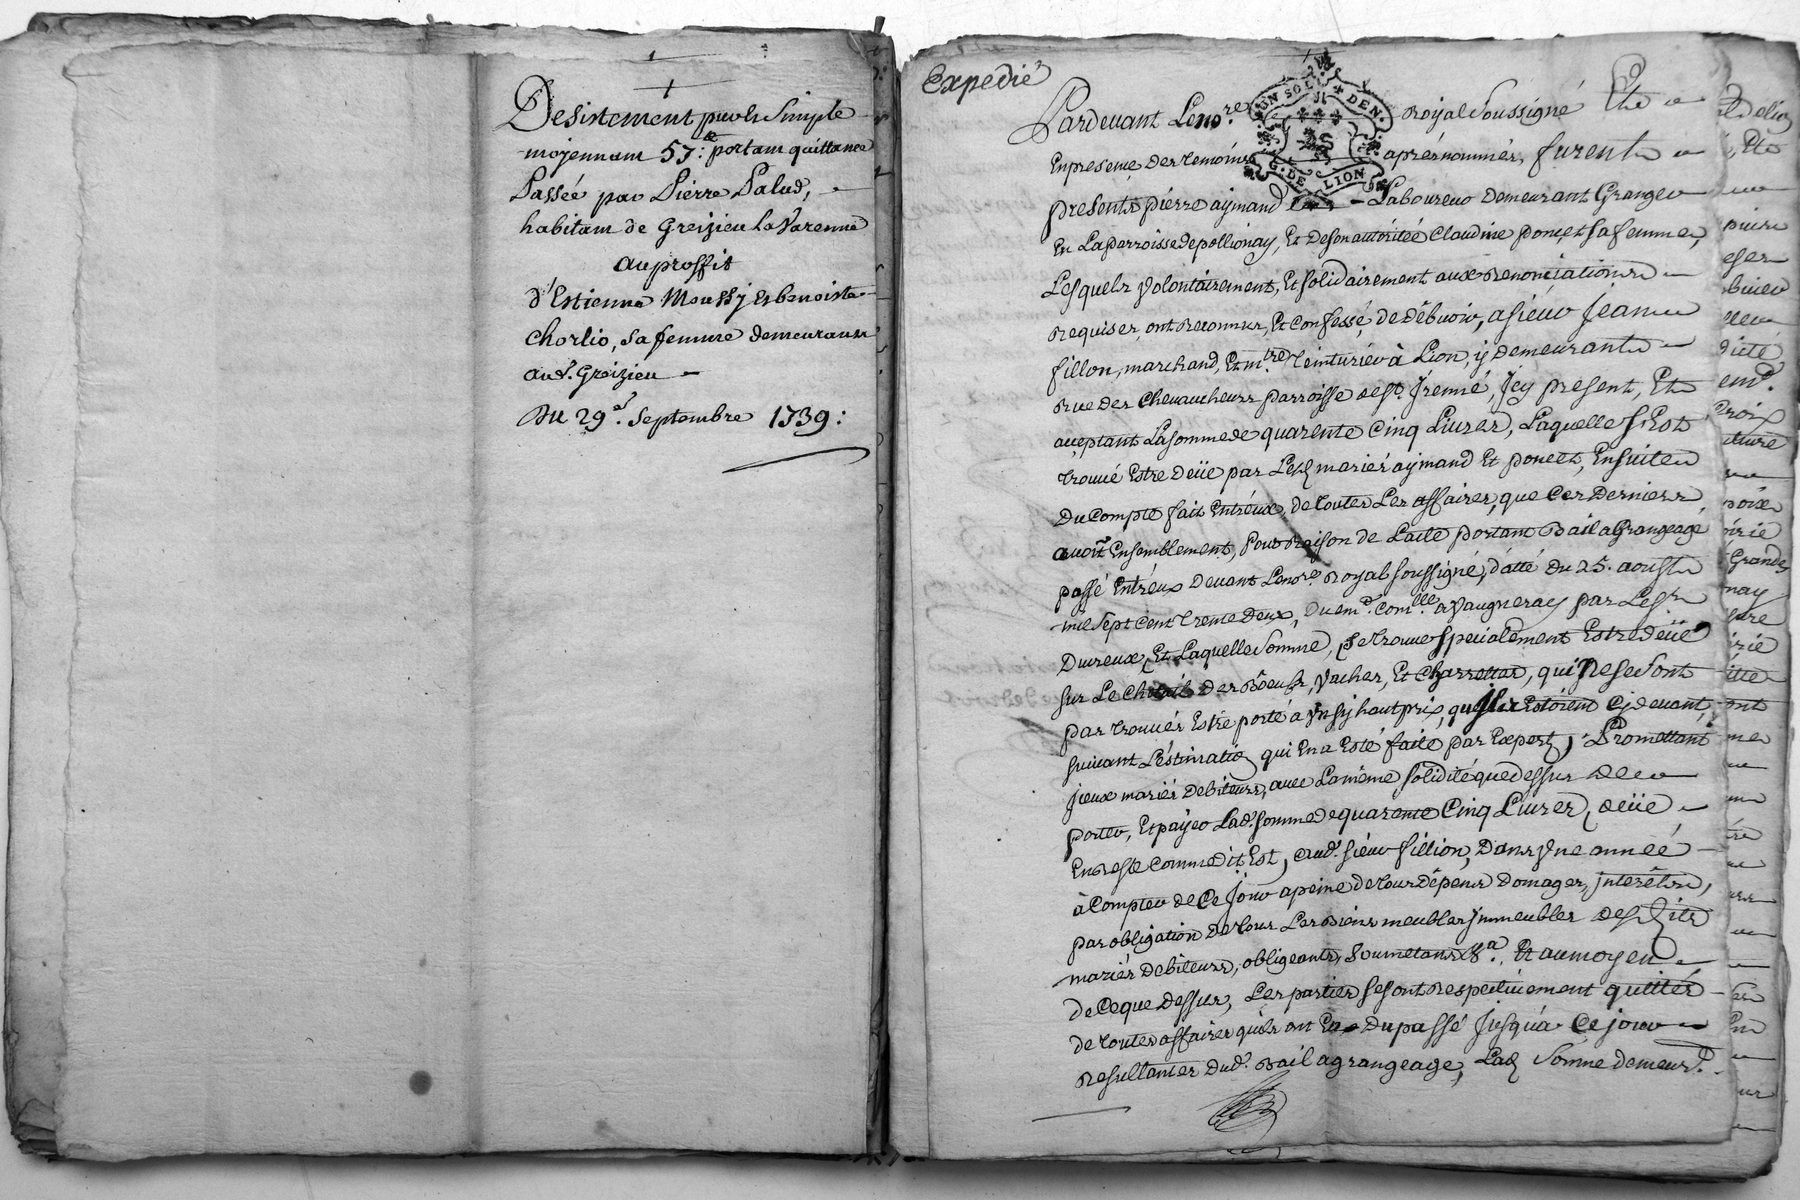 Desistement pur & simple
moyennant 57:ᵗᵗ portant quittance
Passée par Pierre Palud,
habitant de Greizieu la Varenne
au proffit
d'Estienne Moussy et benoiste
chorlio, sa femme demeurants
aud. Greizieu
Du 29ᵉ. Septembre 1739:
Expedié
UN SOL DEN.
G. DE LION
Pardevant Le noʳᵉ Royal Soussigné Et
En presence des temoins aprés nommés, furent
presents pierre aymand Laboureur demeurant Granger
En La parroisse de pollionay, Et de son autoritée Claudine poncet sa femme,
Lesquels volontairement, Et solidairement aux renonciations
requises, ont reconnus, Et confessé, de Débvoir, a sieur Jean
fillon, marchand, Et mᵗʳᵉ teinturier à Lion, y demeurant
rue des Chevaucheurs parroisse de sᵗ. Jrenné, Jcy present, Et
acceptant La somme de quarente Cinq Livres, Laquelle s'Est
trouvé Estre deüe par Lesd mariés aymand Et poncet, Ensuitte
du Compte fait Entréux, de toutes Les affaires, que Ces Derniers
avoiᵗ Ensemblement, pour Raison de L'acte portant Bail a Grangeage
passé Entréux Devant Le noʳᵉ Royal soussigné, d'atté du 25. aoust
mil sept cent trente Deux, a Vaugneray par Le sʳ
Dureux, Et Laquelle somme, se trouve specialement Estre deüe
sur Le Des Bœufs, Vaches, Et Charrettes, qui Ne se sont
pas trouvés Estre porté a Vn sy haut prix, qu'jls Estoient Cy devant,
suivant L'éstimatiõ qui En a Esté faite par Expert, Promettant
jceux mariés debiteurs, avec La méme solidité que dessus de
porter, Et payer Lad. somme de quarente Cinq Livres, deüe
En reste comme dit Est, aud. sieur fillion, dans Vne année
à Compter de Ce Jour a peine de tous dépens domages, jnteréts,
par obligation de tous Les Biens meubles jmmeubles desdits
mariés debiteurs, obligeants, soumetans &ᵃ. Et au moyen
de Ce que dessus, Les parties se sont respectivement quittés
de toutes affaires qu'ils ont Eu du passé Jusqu'a Ce jour
resultantes dud. Bail a grangeage, Lad somme demeurᵗ.